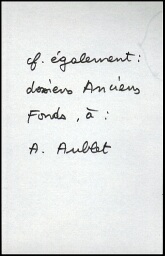 cf. également :
dossiers Anciens
Fonds, à :
A. Aublet